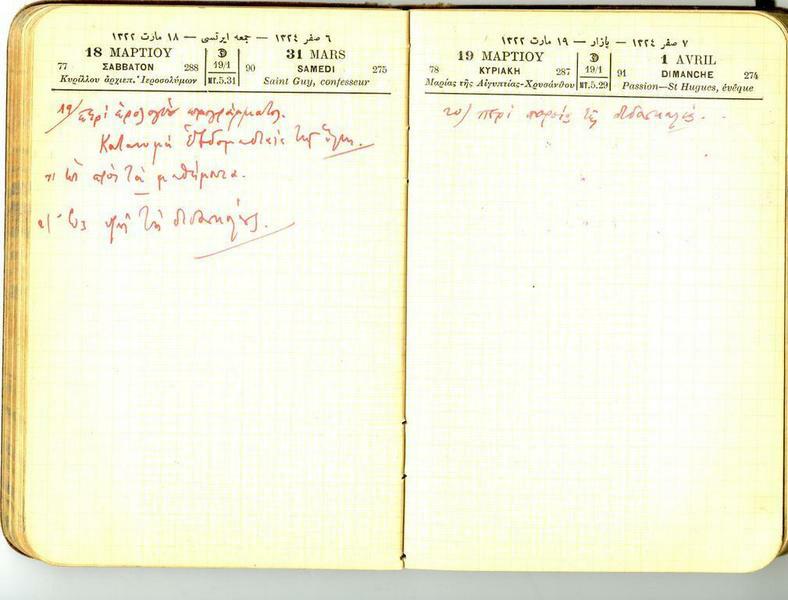 ٦ صفر ١٣٢٤ — جمعه ايرتسى — ١٨ مارت ١٣٢٢
18 ΜΑΡΤΙΟΥ
31 MARS
77 ΣΑΒΒΑΤΟΝ 288
19/1
ΜΤ.5.31
90 SAMEDI 275
Κυρίλλου ἀρχιεπ. Ἱεροσολύμων
Saint Guy, confesseur
19/ περὶ ὡρολογίου προγράμματος.
Κατανομὴ ἑβδομαδιαία τῆς ὕλης.
ὡς πρὸς τὰ μαθήματα.
ὡς πρὸς τὴν διδασκαλίαν.
٧ صفر ١٣٢٤ — بازار — ١٩ مارت ١٣٢٢
19 ΜΑΡΤΙΟΥ
1 AVRIL
78 ΚΥΡΙΑΚΗ 287
19/1
ΜΤ.5.29
91 DIMANCHE 274
Μαρίας τῆς Αἰγυπτίας-Χρυσάνθου
Passion—St Hugues, évêque
20/ περὶ πορείας τῆς διδασκαλίας.